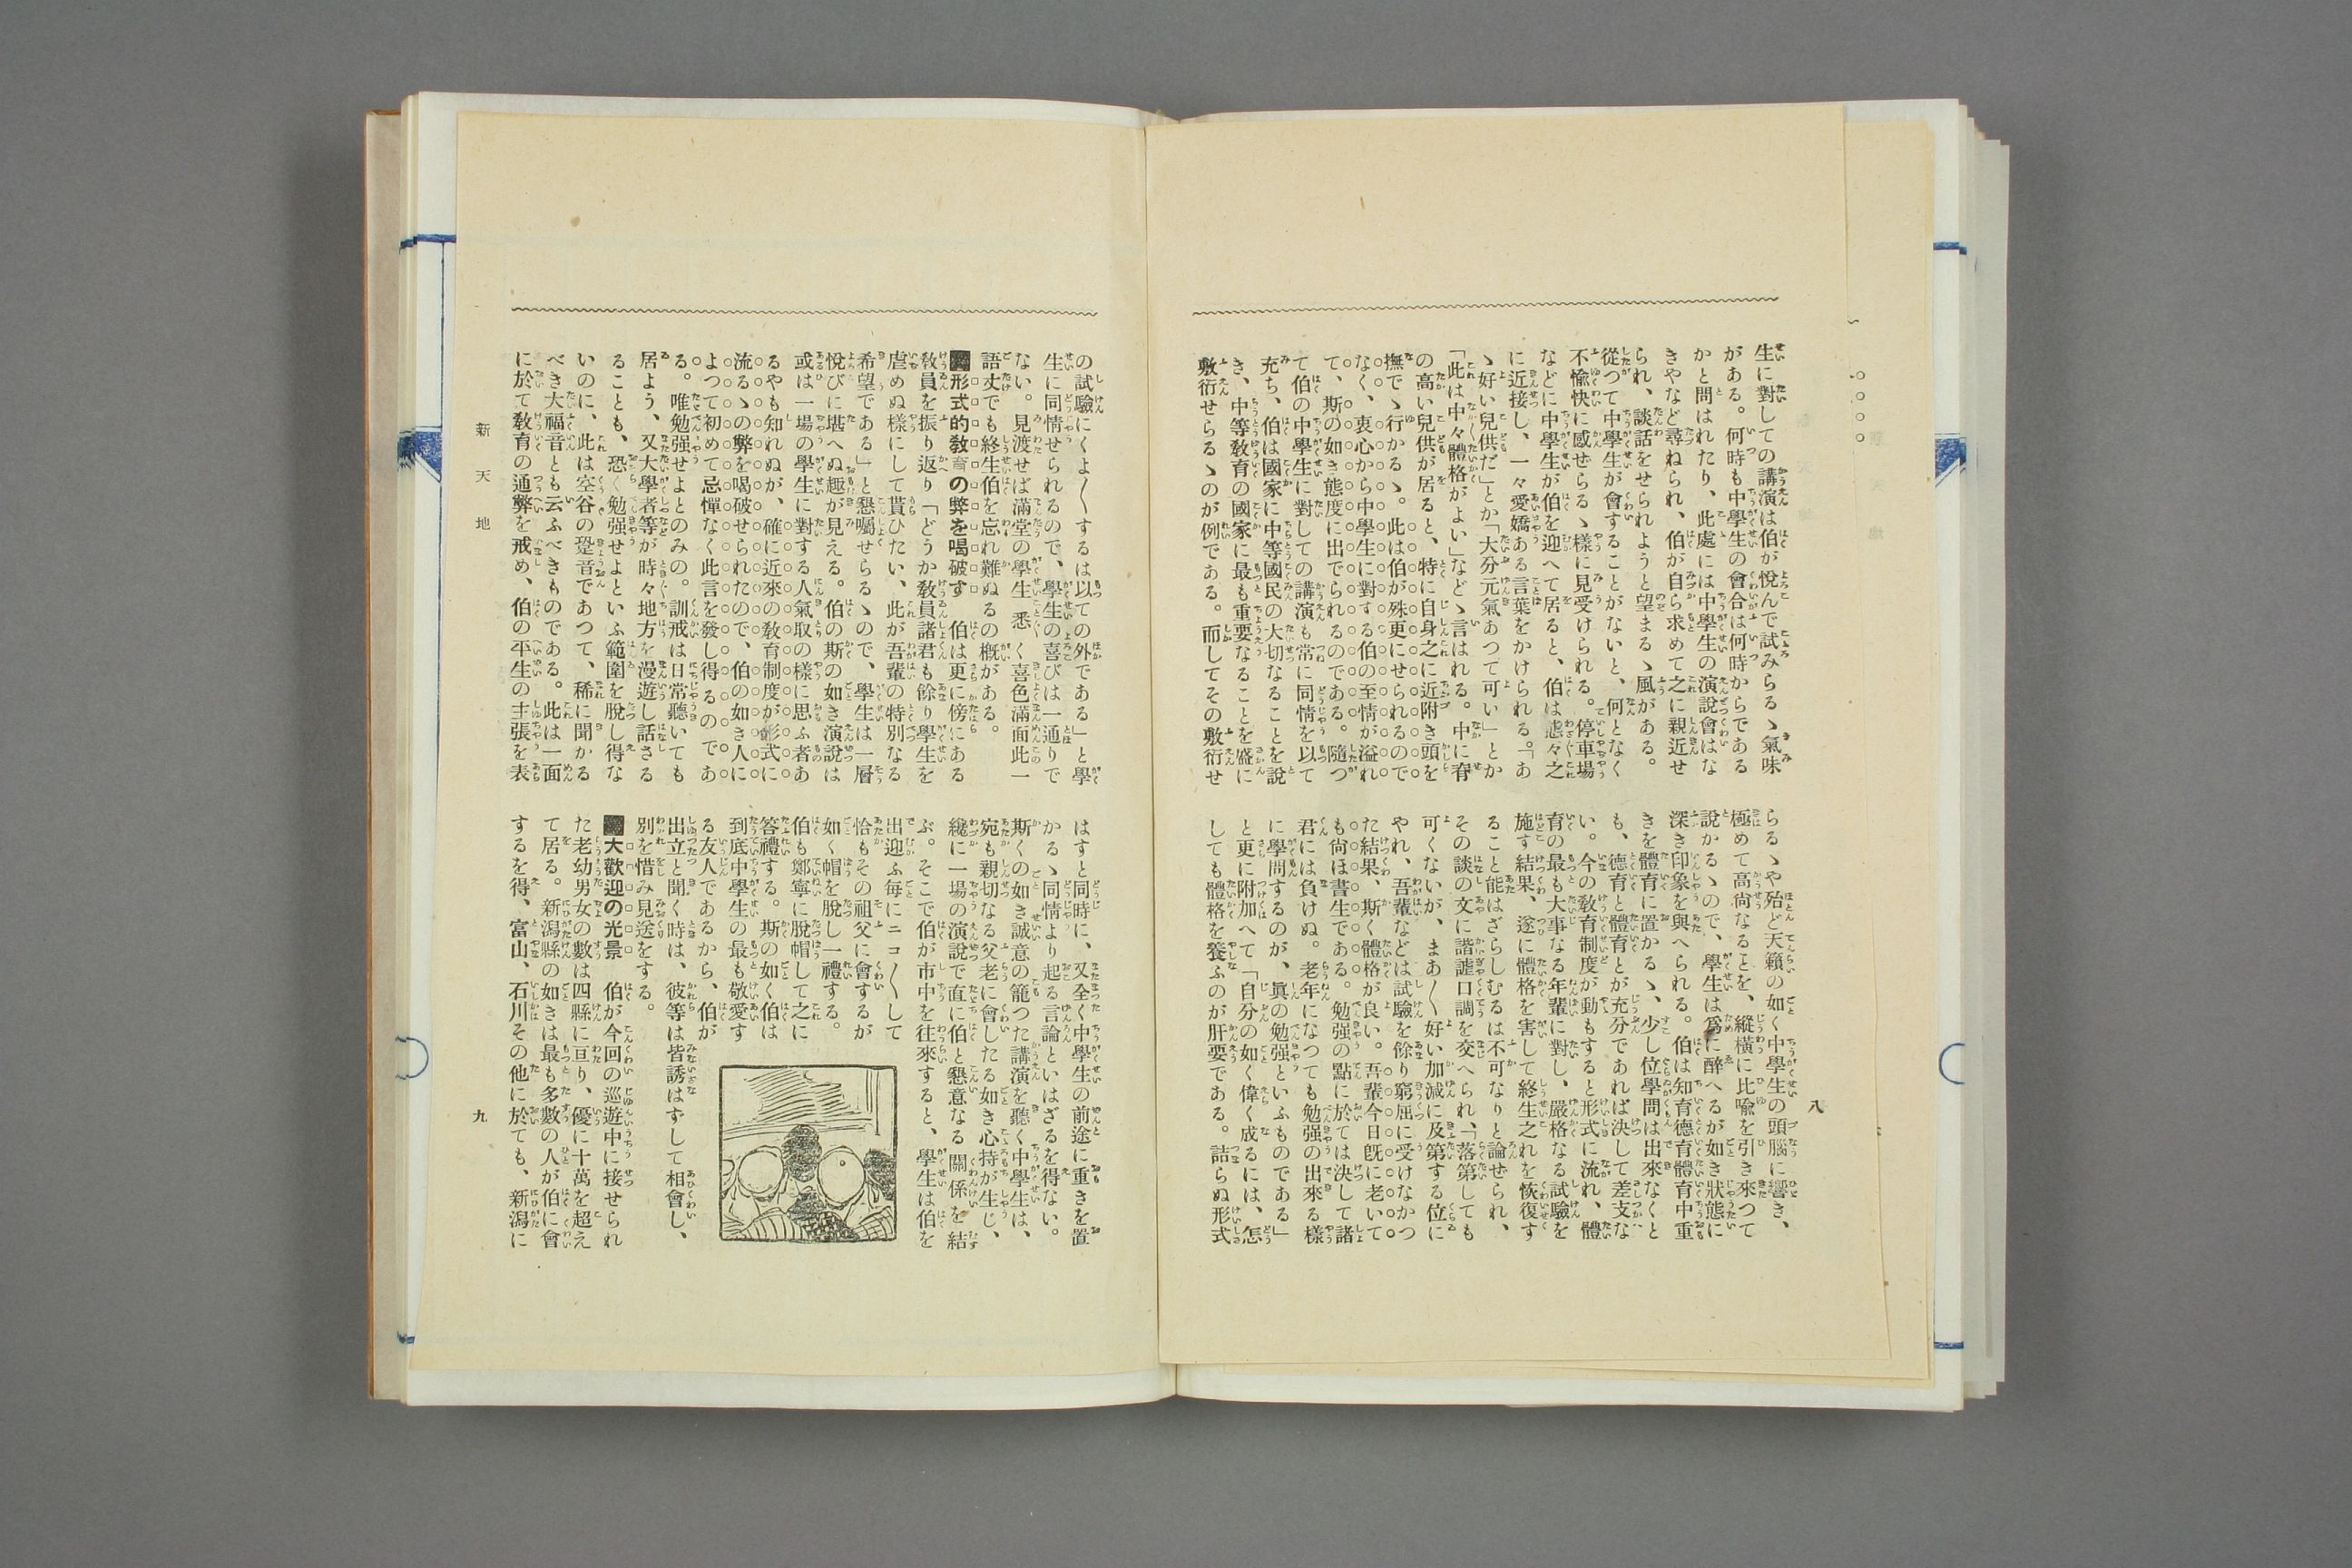 生に對しての講演は伯が悅んで試みらるゝ氣味
がある。何時も中學生の會合は何時からである
かと問はれたり、此處には中學生の演說會はな
きやなど尋ねられ、伯が自ら求めて之に親近せ
られ、談話をせられようと望まるゝ風がある。
從つて中學生が會することがないと、何となく
不愉快に感せらるゝ樣に見受けられる。停車場
などに中學生が伯を迎へて居ると、伯は態々之
に近接し、一々愛嬌ある言葉をかけられる。「あ
ゝ好い兒供だ」とか「大分元氣あつて可い」とか
「此は中々體格がよい」などゝ言はれる。中に脊
の高い兒供が居ると、特に自身之に近附き頭を
撫でゝ行かるゝ。此は伯が殊更にせられるので
なく、衷心から中學生に對する伯の至情が溢れ
て、斯の如き態度に出でられるのである。隨つ
て伯の中學生に對しての講演も常に同情を以て
充ち、伯は國家に中等國民の大切なることを說
き、中等敎育の國家に最も重要なることを盛に
敷衍せらるゝのが例である。而してその敷衍せ
らるゝや殆ど天籟の如く中學生の頭腦に響き、
極めて高尙なることを、縱橫に比喩を引き來つて
說かるゝので、學生は爲に醉へるが如き狀態に
深き印象を與へられる。伯は知育德育體育中重
きを體育に置かるゝ、少し位學問は出來なくと
も、德育と體育とが充分であれば決して差支な
い。今の敎育制度が動もすると形式に流れ、體
育の最も大事なる年輩に對し、嚴格なる試驗を
施す結果、遂に體格を害して終生之れを恢復す
ること能はざらしむるは不可なりと論せられ、
その談の文に諧謔口調を交へられ、「落第しても
可くないが、まあ〳〵好い加減に及第する位に
やれ、吾輩などは試驗を餘り窮屈に受けなかつ
た結果、斯く體格が良い。吾輩今日旣に老いて
も尙ほ書生である。勉强の點に於ては決して諸
君には負けぬ。老年になつても勉强の出來る樣
に學問するのが、眞の勉强といふものである」
と更に附加へて「自分の如く偉く成るには、怎
しても體格を養ふのが肝要である。詰らぬ形式
八
の試驗にくよ〳〵するは以ての外である」と學
生に同情せられるので、學生の喜びは一通りで
ない。見渡せば滿堂の學生悉く喜色滿面此一
語丈でも終生伯を忘れ難ぬるの槪がある。
■形式的敎育の弊を喝破す　伯は更に傍にある
敎員を振り返り「どうか敎員諸君も餘り學生を
虐めぬ樣にして貰ひたい、此が吾輩の特別なる
希望である」と懇囑せらるゝので、學生は一層
悅びに堪へぬ趣が見える。伯の斯の如き演說は
或は一場の學生に對する人氣取の樣に思ふ者あ
るやも知れぬが、確に近來の敎育制度が形式に
流るゝの弊を喝破せられたので、伯の如き人に
よつて初めて忌憚なく此言を發し得るのであ
る。唯勉强せよとのみの。訓戒は日常聽いても
居よう、又大學者等が時々地方を漫遊し話さる
ることも、恐く勉强せよといふ範圍を脫し得な
いのに、此は空谷の跫音であつて、稀に聞かる
べき大福音とも云ふべきものである。此は一面
に於て敎育の通弊を戒め、伯の平生の主張を表
はすと同時に、又全く中學生の前途に重きを置
かるゝ同情より起る言論といはざるを得ない。
斯くの如き誠意の籠つた講演を聽く中學生は、
宛も親切なる父老に會したる如き心持が生じ、
纔に一場の演說で直に伯と懇意なる關係を結
ぶ。そこで伯が市中を往來すると、學生は伯を
出迎ふ每にニコ〳〵して
恰もその祖父に會するが
如く帽を脫し一禮する。
伯も鄭寧に脫帽して之に
答禮する。斯の如く伯は
到底中學生の最も敬愛す
る友人であるから、伯が
出立と聞く時は、彼等は皆誘はずして相會し、
別を惜み見送をする。
■大歡迎の光景　伯が今回の巡遊中に接せられ
た老幼男女の數は四縣に亘り、優に十萬を超え
て居る。新潟縣の如きは最も多數の人が伯に會
するを得、富山、石川その他に於ても、新潟に
新天地
九